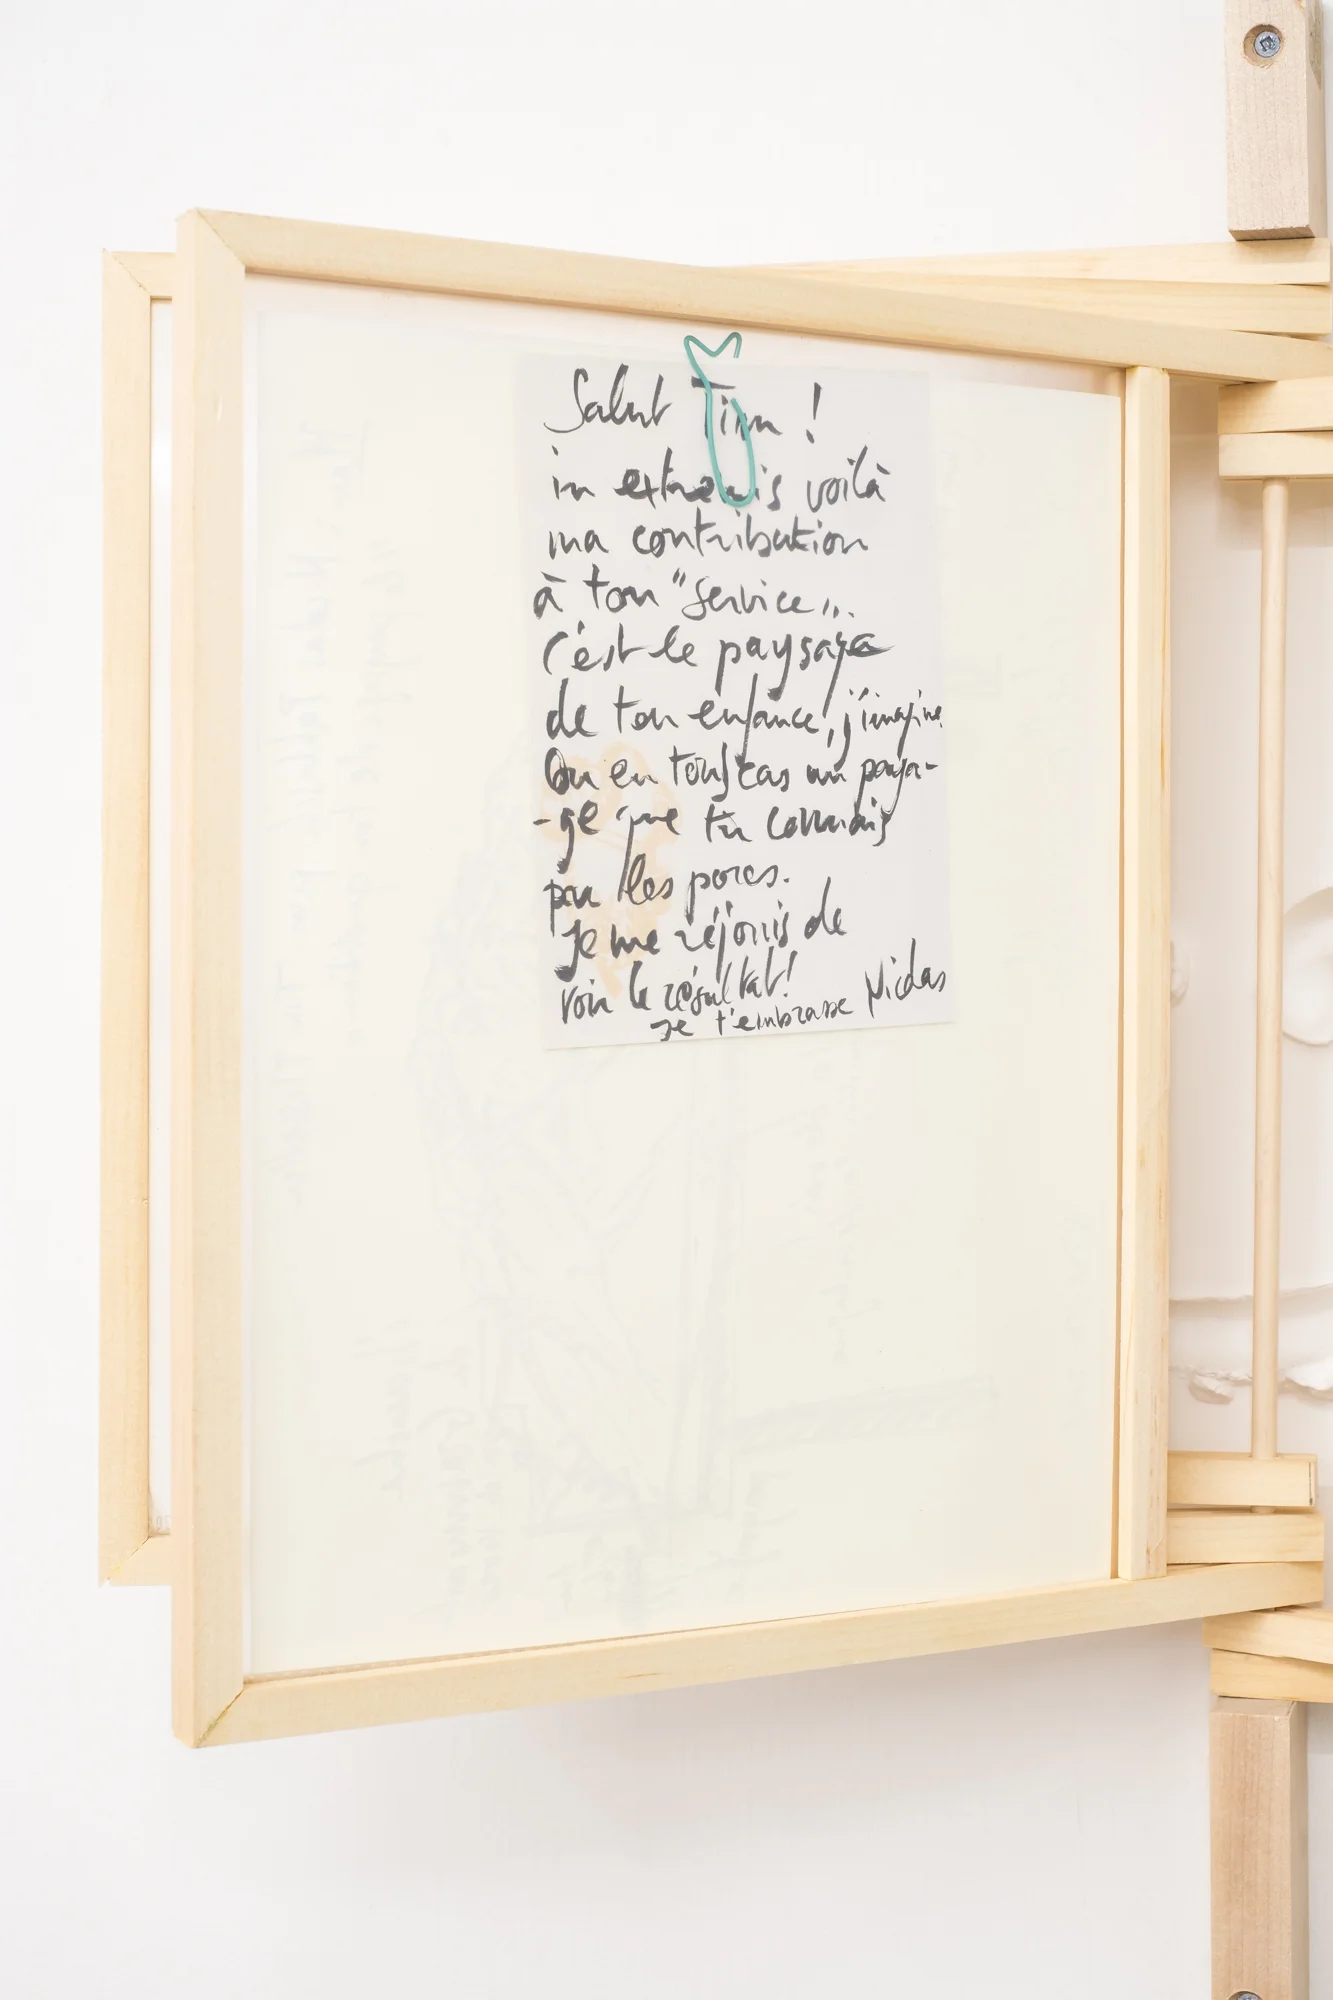 Salut Tim !
in extremis voilà
ma contribution
à ton "service".
C'est le paysage
de ton enfance, j'imagine
Ou en tous cas un paysa-
-ge que tu connais
par les pores.
Je me réjouis de
voir le résultat!
je t'embrasse Nicolas